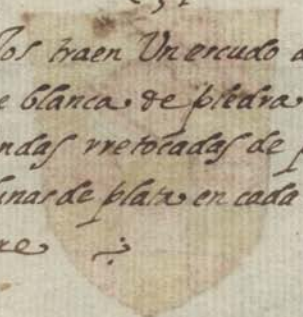 los traen Un escudo
e blanca de piedra
ndas rretocadas de
unas de plata en cada
re